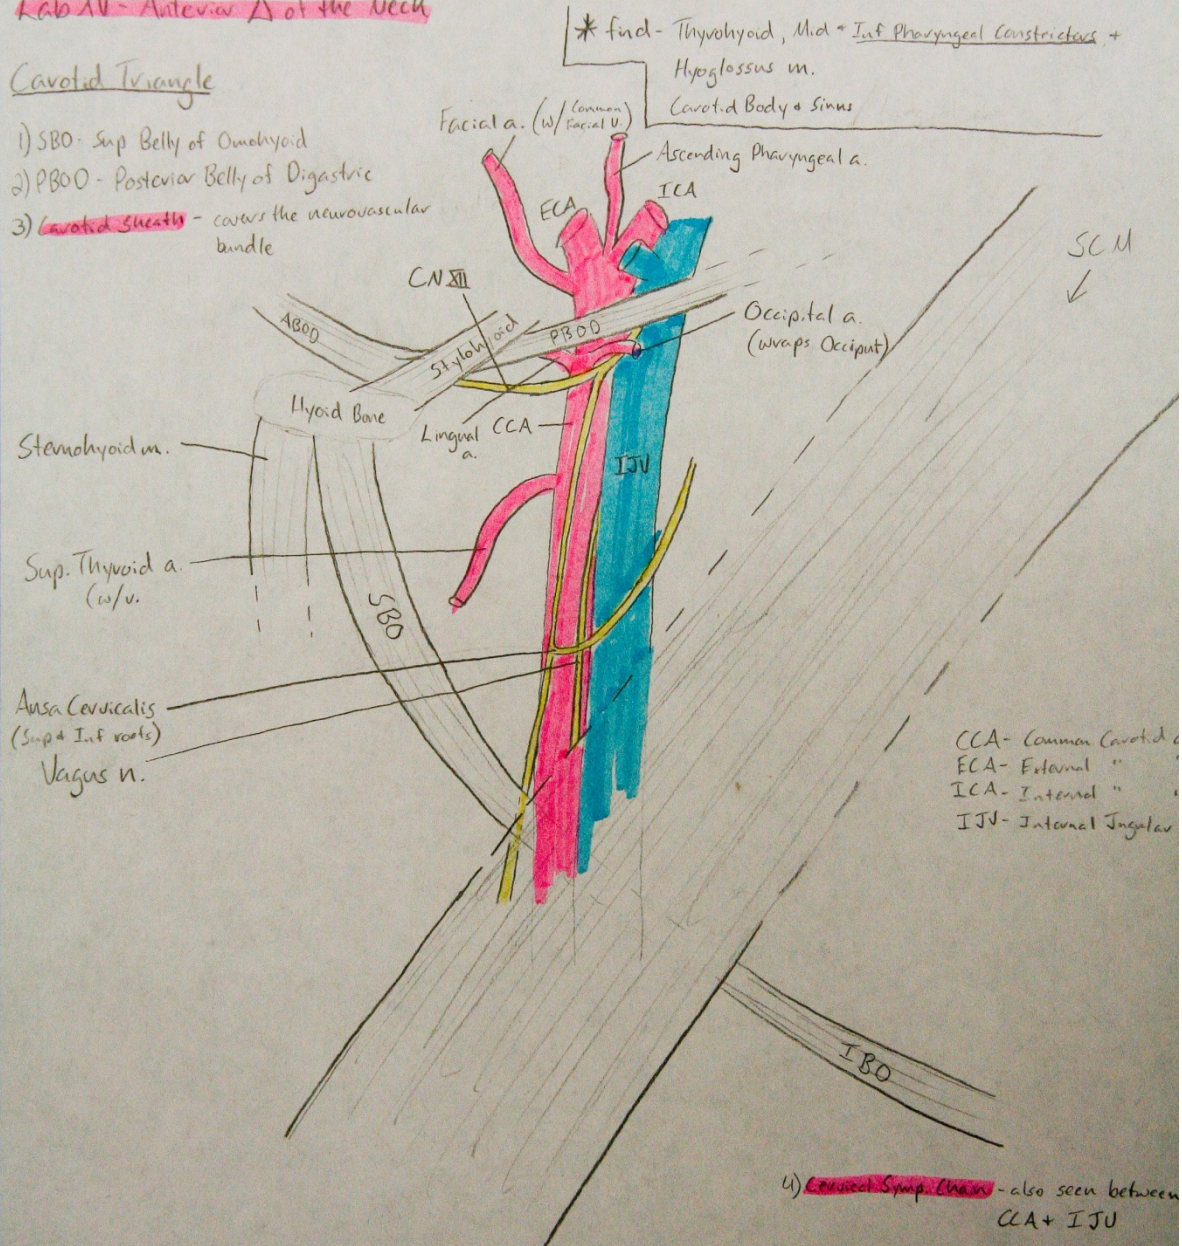 Lab IV - Anterior Δ of the Neck
* find - Thyrohyoid, Mid + Inf Pharyngeal Constrictors, +
Hyoglossus m.
Carotid Body & Sinus
Carotid Triangle
1) SBO - Sup Belly of Omohyoid
2) PBOD - Posterior Belly of Digastric
3) Carotid Sheath - covers the neurovascular
bundle
Facial a. (w/ Common
Facial V.)
Ascending Pharyngeal a.
ECA
ICA
SCM
CN XII
ABOD
Stylohyoid
PBOD
Occipital a.
(wraps Occiput)
Hyoid Bone
Lingual
a.
CCA
IJV
Sternohyoid m.
Sup. Thyroid a.
(w/v.
SBO
Ansa Cervicalis
(Sup & Inf roots)
Vagus n.
CCA - Common Carotid a
ECA - External "
ICA - Internal " "
IJV - Internal Jugular
IBO
4) Cervical Symp. Chain - also seen between
CCA + IJV